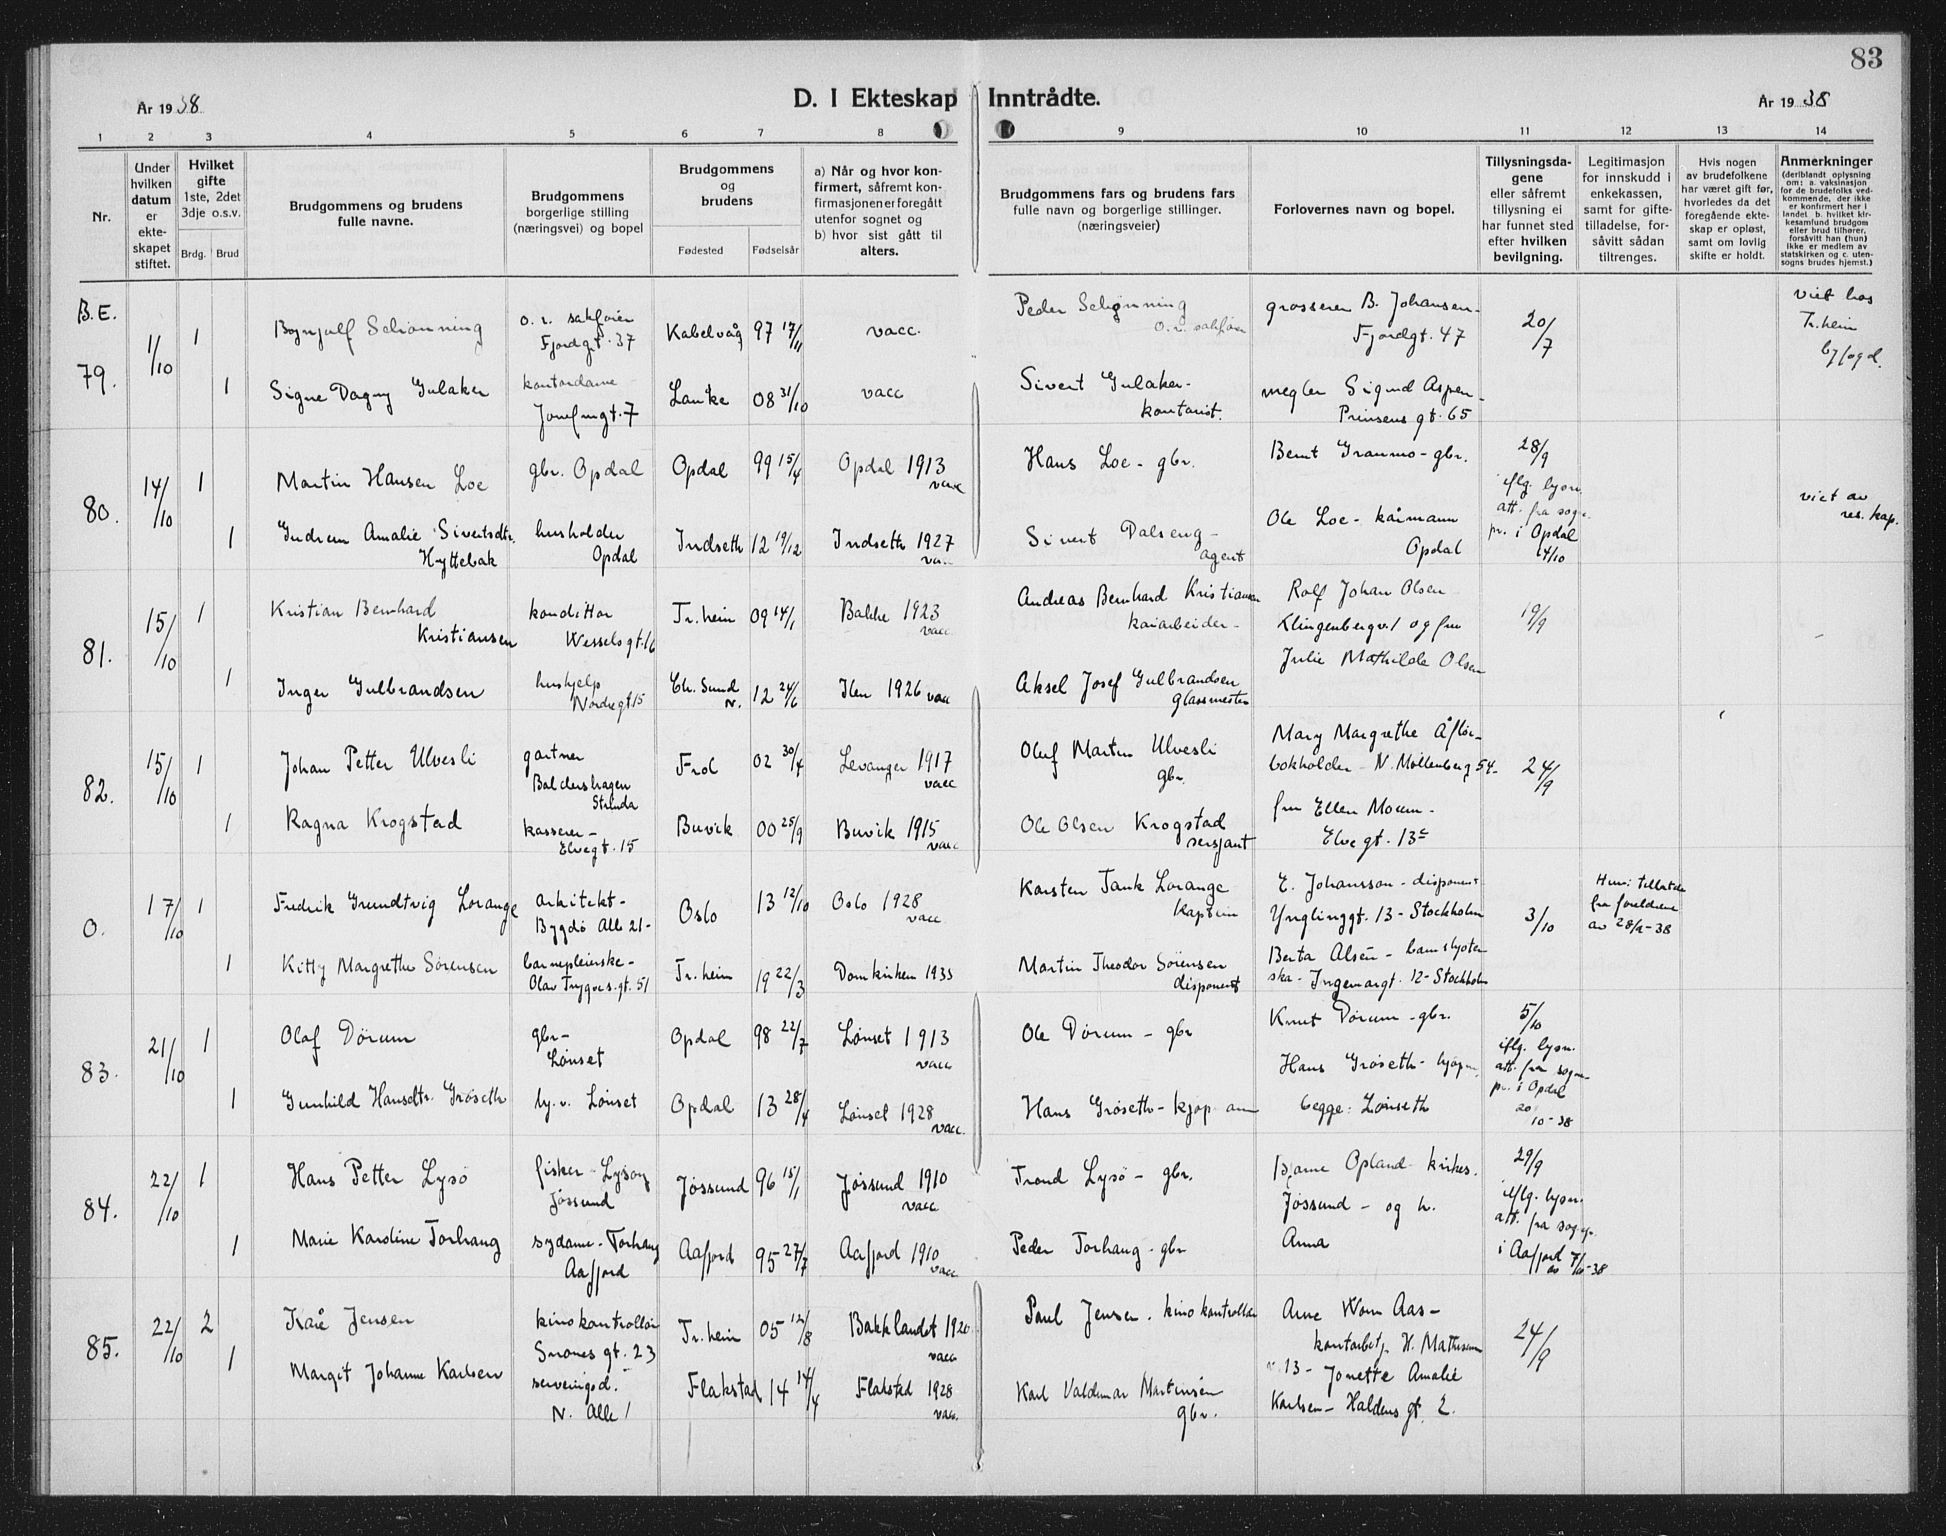 83
År 1938
D. I Ekteskap Inntrådte.
År 1938
1 2 3 4 5 6 7 8 9 10 11 12 13 14
Nr.
Under hvilken datum er ekte-skapet stiftet.
Hvilket gifte 1ste, 2det 3dje o.s.v.
Brdg. Brud
Brudgommens og brudens fulle navne.
Brudgommens borgerlige stilling (næringsvei) og bopel
Brudgommens og brudens
Fødested Fødselsår
a) Når og hvor kon-firmert, såfremt kon-firmasjonen er foregått utenfor sognet og b) hvor sist gått til alters.
Brudgommens fars og brudens fars fulle navn og borgerlige stillinger. (næringsveier)
Forlovernes navn og bopel.
Tillysningsda-gene eller såfremt tillysning ei har funnet sted efter hvilken bevilgning.
Legitimasjon for innskudd i enkekassen, samt for gifte-tilladelse, for-såvitt sådan tiltrenges.
Hvis nogen av brudefolkene har været gift før, hvorledes da det foregående ekte-skap er opløst, samt om lovlig skifte er holdt.
Anmerkninger (deriblandt oplysning om: a. vaksinasjon for de brudefolks ved-kommende, der ikke er konfirmert her i landet. b. hvilket kir-kesamfund brudgom eller brud tilhører, forsåvitt han (hun) ikke er medlem av statskirken og c. uten-sogns brudes hjemst.)
B.E.
79. 1/10 1 Schønning o.r. sakfører Fjordgt. 37 Kabelvåg 97 17/11 vacc.
Peder Schønning o.r. sakfører
grosserer B. Johansen - Fjordgt. 47
20/7
viet hos Tr.heim byfogd.
1 Signe Dagny Gulaker kontordame 7 08 31/10 vacc
Sivert Gulaker - kontorist.
megler Sigurd Aspen - Prinsens gt. 65
80. 14/10 1 Martin Hansen Loe gbr. Opdal Opdal 99 15/4 Opdal 1913 vacc
Hans Loe - gbr.
Bernt Granmo - gbr.
28/9 iflg. lysn. att. fra sogn. pr. i Opdal 14/10
viet av res. kap.
1 Gudrun Amalie Sivertsdtr. Hyttebak husholder Opdal Indseth 12 19/12 Indseth 1927
Sivert Dalseng - agent
Ole Loe - kårmann Opdal
81. 15/10 1 Kristian Bernhard Kristiansen konditor Wessels gt. 16 Tr.heim 09 14/1 Bakke 1923 vacc.
Andreas Bernhard Kristiansen kaiarbeider -
Rolf Johan Olsen Klingenbergv. 1 og fru
19/9
1 Inger Gulbrandsen hushjelp Nordregt. 15 Chr. Sund N. 12 24/6 Ilen 1926 vacc
Aksel Josef Gulbrandsen glassmester
Julie Mathilde Olsen
82. 15/10 1 Johan Petter Ulvesli gartner Baldershagen Strinda Frol 02 30/4 Levanger 1917 vacc
Oluf Martin Ulvesli gbr.
Mary Margrethe bokholder - N. Møllenberg 54 -
24/9
1 Ragna Krogstad kasserer - Elvegt. 15 Buvik 00 25/9 Buvik 1915 vacc
Ole Olsen Krogstad sersjant
fru Ellen Moum - Elvegt. 13c
0. 17/10 1 Fredrik Grundtvig Lorange arkitekt - Bygdø Alle 21 - Oslo 13 12/10 Oslo 1928 vacc
Karsten Tank Lorange kaptein
E. Johansson - disponent Ynglinggt. 13 - Stockholm
3/10
fra foreldrene av 28/9-38
1 Kitty Margrethe Sørensen barnepleierske - Olav Trygves. gt. 51 Tr.heim 19 22/3 Domkirken 1935
Martin Theodor Sørensen disponent
Berta Alsén - Ingemargt. 12 - Stockholm
83. 21/10 1 Olaf Dørum gbr - Lønset Opdal 98 22/7 Lønset 1913 vacc
Ole Dørum - gbr
Knut Dørum - gbr.
5/10 iflg. lysn. att. fra sogn. pr. i Opdal 20/10-38
1 Gunhild Hansdtr. Grøseth Lønset Opdal 13 28/4 Lønset 1928 vacc.
Hans Grøseth - kjøpmann
Hans Grøseth - kjøpm. begge: Lønseth
84. 22/10 1 Hans Petter Lysø fisker - Lysøy Jøssund Jøssund 96 15/1 Jøssund 1910 vacc
Trond Lysø - gbr.
Bjarne Opland - kirkes. Jøssund - og h.
29/9 iflg. lysn. att. fra sogn. i Aafjord
1 Marie Karoline Torhaug sydame - Torhaug Aafjord Aafjord 95 27/7 Aafjord 1910 vacc
Peder Torhaug - gbr
Anna
85. 22/10 2 Kåre Jensen kinokontrollør 23 Tr.heim 05 12/8 Bakklandet 1920 vacc
Paul Jensen - kinokontrollør
Arne Worn Aas - kontorbetj. H. Mathesens v 13 -
24/9
1 Margit Johanne Karlsen serveringsd. N. Alle 1 Flakstad 14 14/4 Flakstad 1928 vacc.
Karl Valdemar Martinsen gbr.
Jonette Amalie Karlsen - Haldens gt. 2.